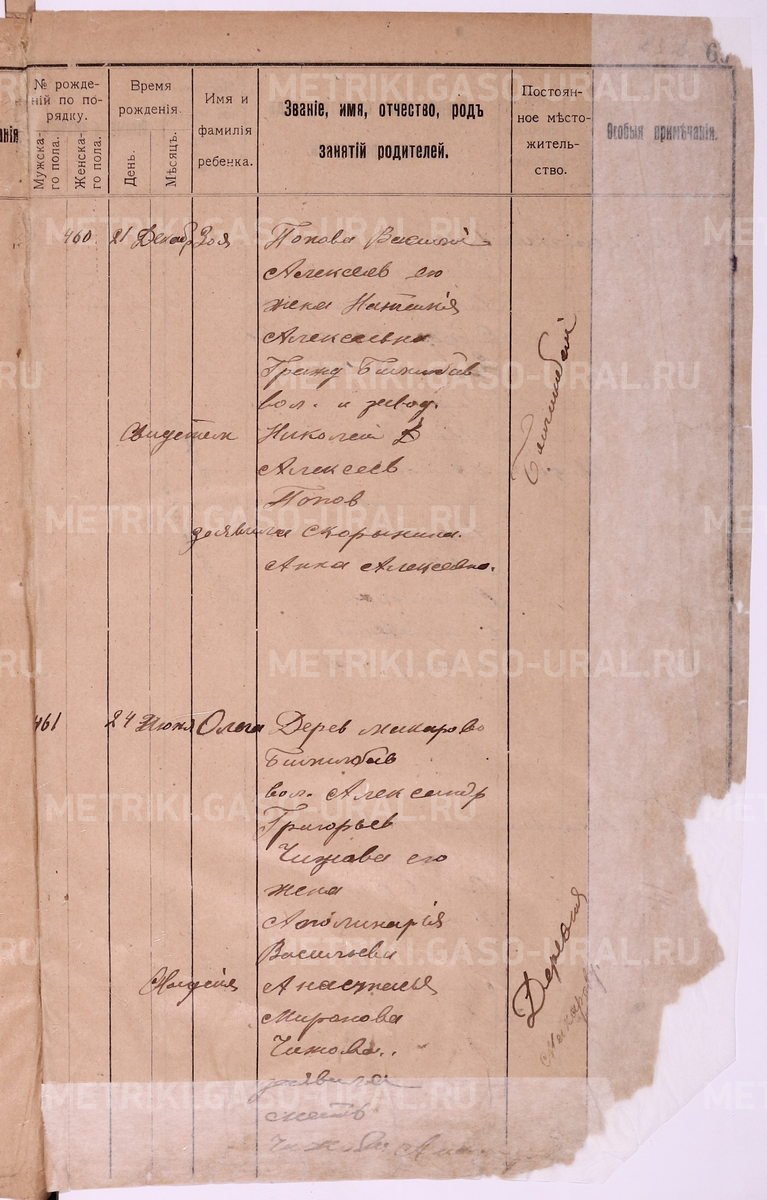 6
№ рожде-
ній по по-
рядку.
Мужска-
го пола.
Женска-
го пола.
Время
рожденія.
День.
Мѣсяцъ.
Имя и
фамилія
ребенка.
Званіе, имя, отчество, родъ
занятій родителей.
Постоян-
ное мѣсто-
жительь-
ство.
Особыя примѣчанія.
460 21 Декабр Зоя Попова Василій
Алексѣев его
жена Наталія
Алексѣевна
Гражд Билимбаев
вол. и завод.
Свидетели Николай
Алексѣев
Попов
заявила Скорынина
Анна Алексѣевна.
Билимбай
461 24 Июня Ольга Дерев Макарово
Билимбав
вол. Александр
Григорьев
Чижова его
жена
Аполинарія
Васильева
Анастасья
Миронова
Чижова..
заявила
мать
Чижова
Деревня
Макаров
METRIKI.GASO-URAL.RU